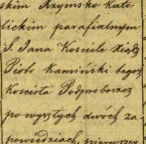 skim Rzymsko Kato-
lickim parafialnym
S. Jana Kościele Ksiądz
Piotr Kamiński tegoż
Kościoła
po wyszłych dwóch za-
powiedziach, pierwszej